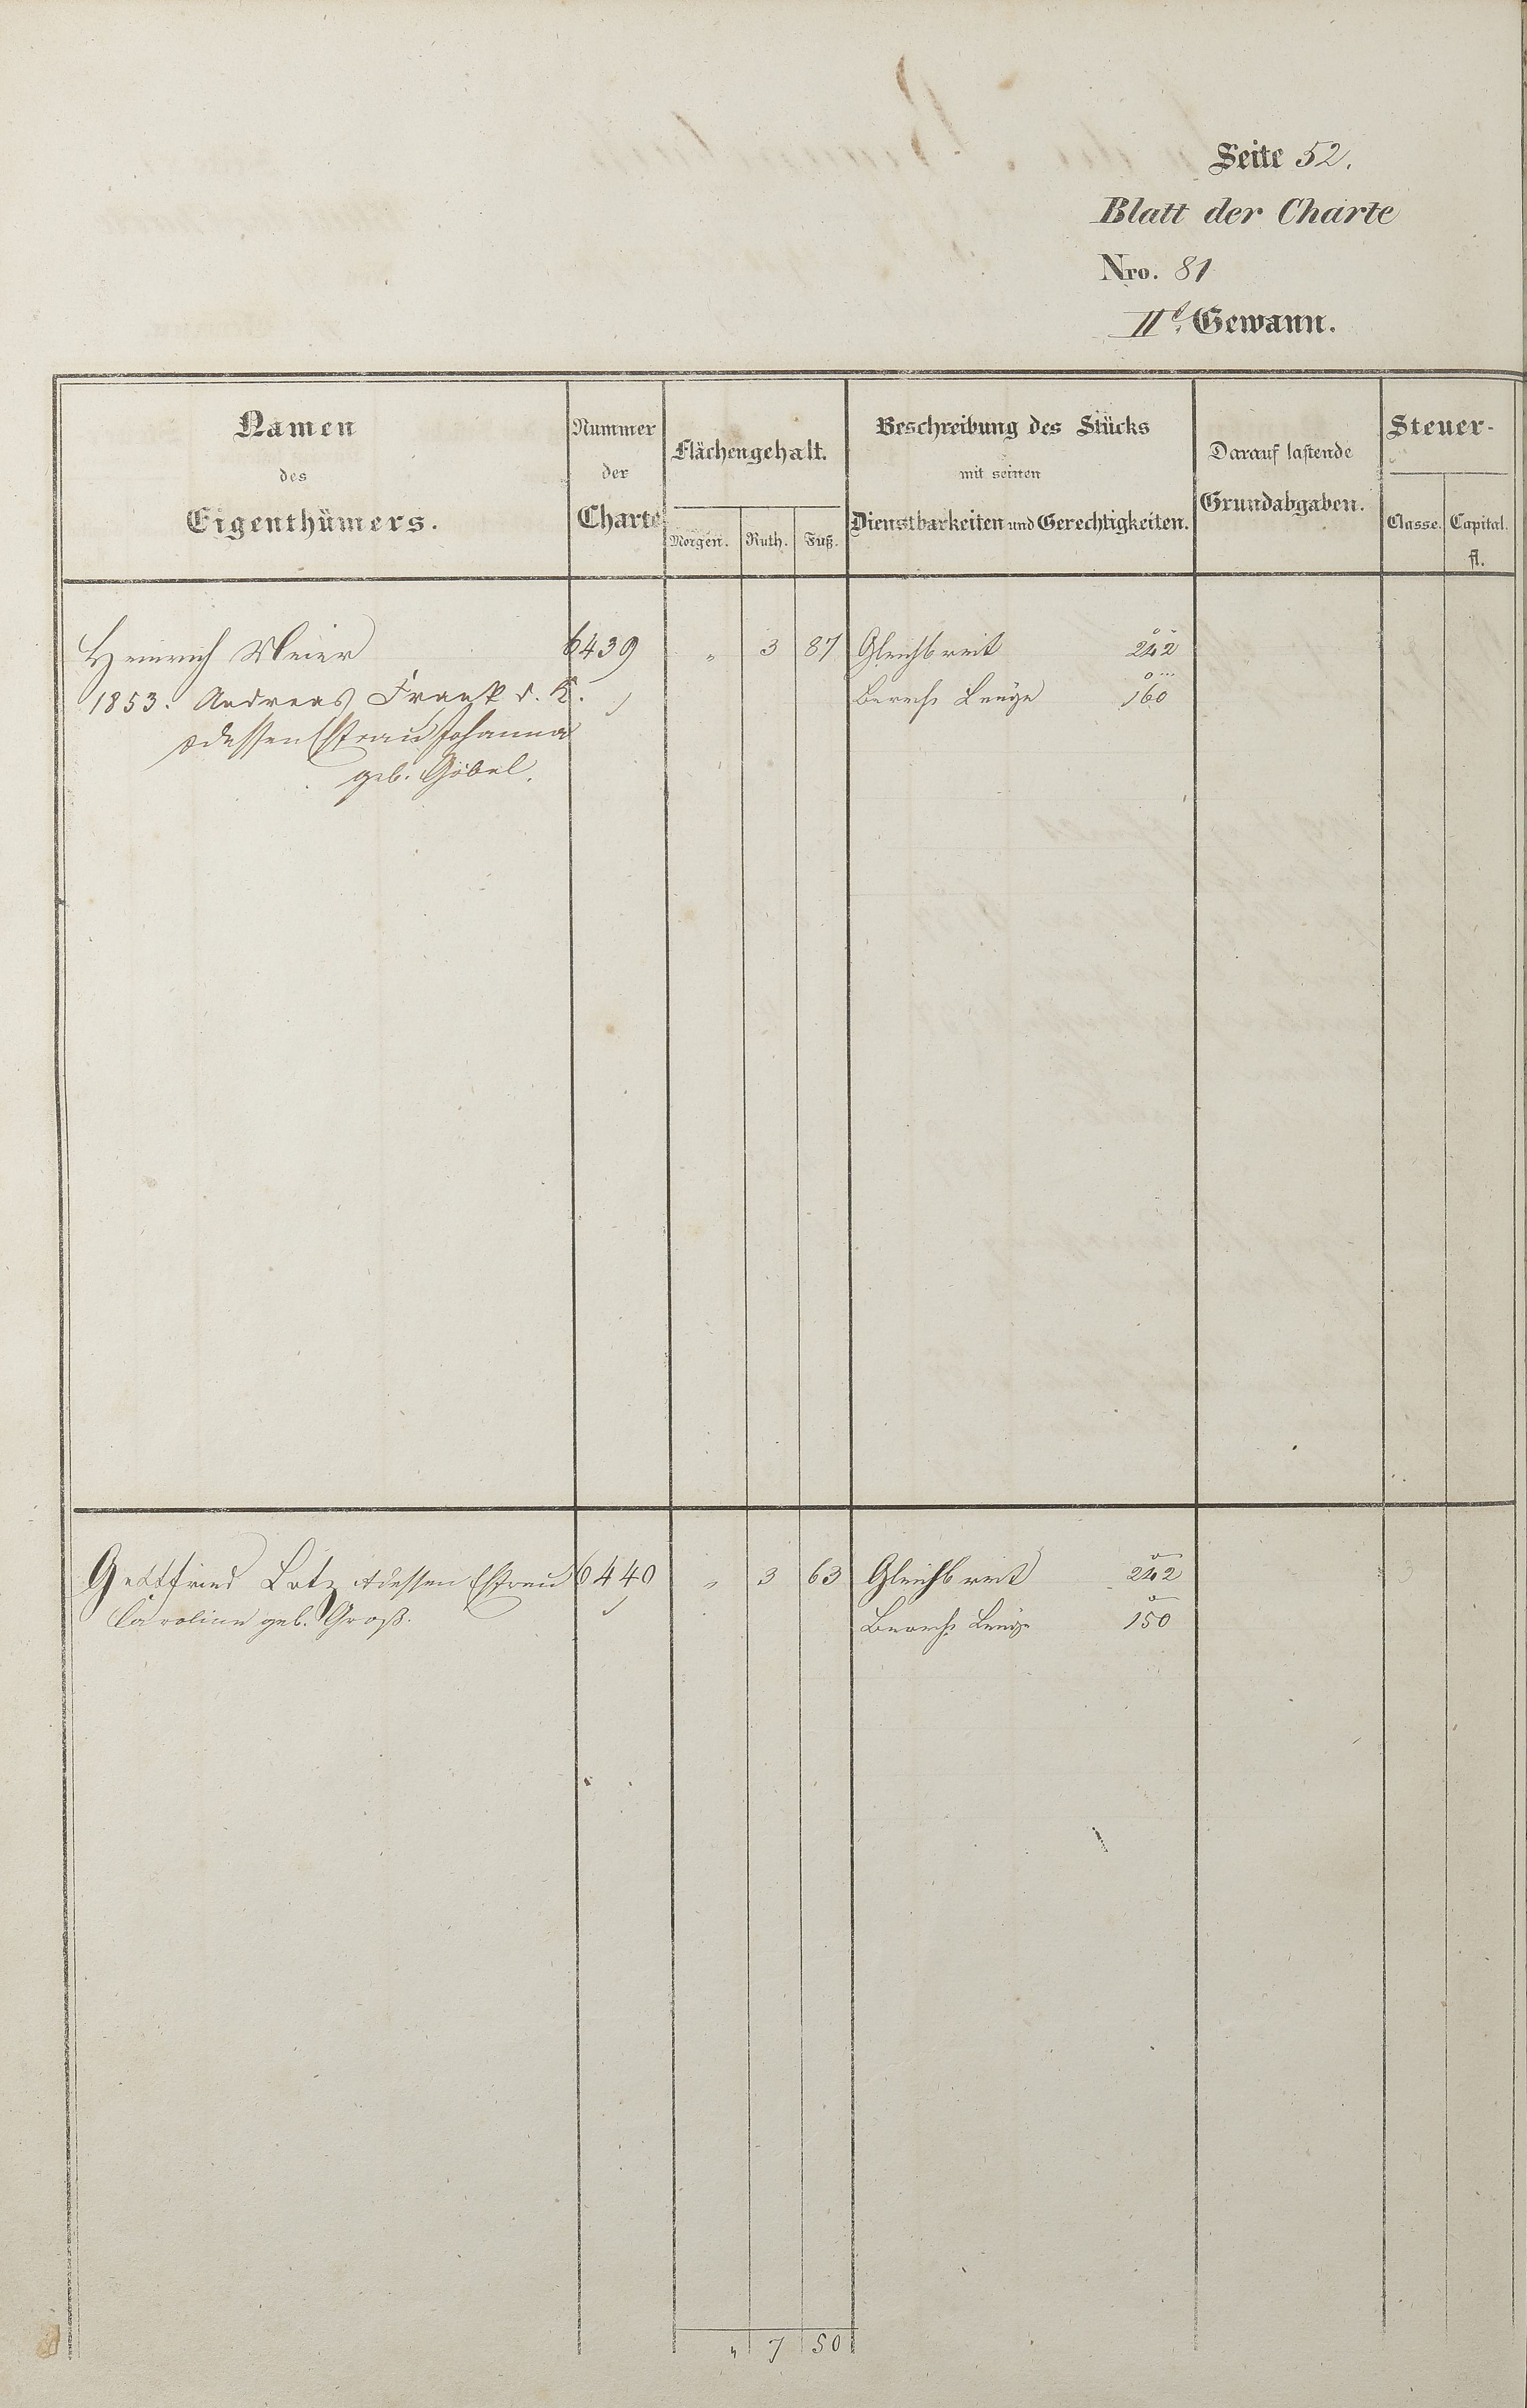 Seite 52.
Blatt der Charte
Nro. 81
IIt. Gewann.
Namen des Eigenthümers.
Nummer der Charte
Flächengehalt.
Morgen. Ruth. Fuß.
Beschreibung des Stücks mit seinen Dienstbarkeiten und Gerechtigkeiten.
Darauf lastende Grundabgaben.
Steuer-
Classe. Capital. fl.
Heinrich Meier 6439 " 3 87 Gleichbreit 242
1853. Andreas Frank d. K. Berech. Länge 160
dessen Ehefrau Johanna
geb. Göbel.
Gottfried Lotz dessen Ehefrau 6440 " 3 63 Gleichbreit 242
Caroline geb. Groß. Berech. Länge 150
" 7 50